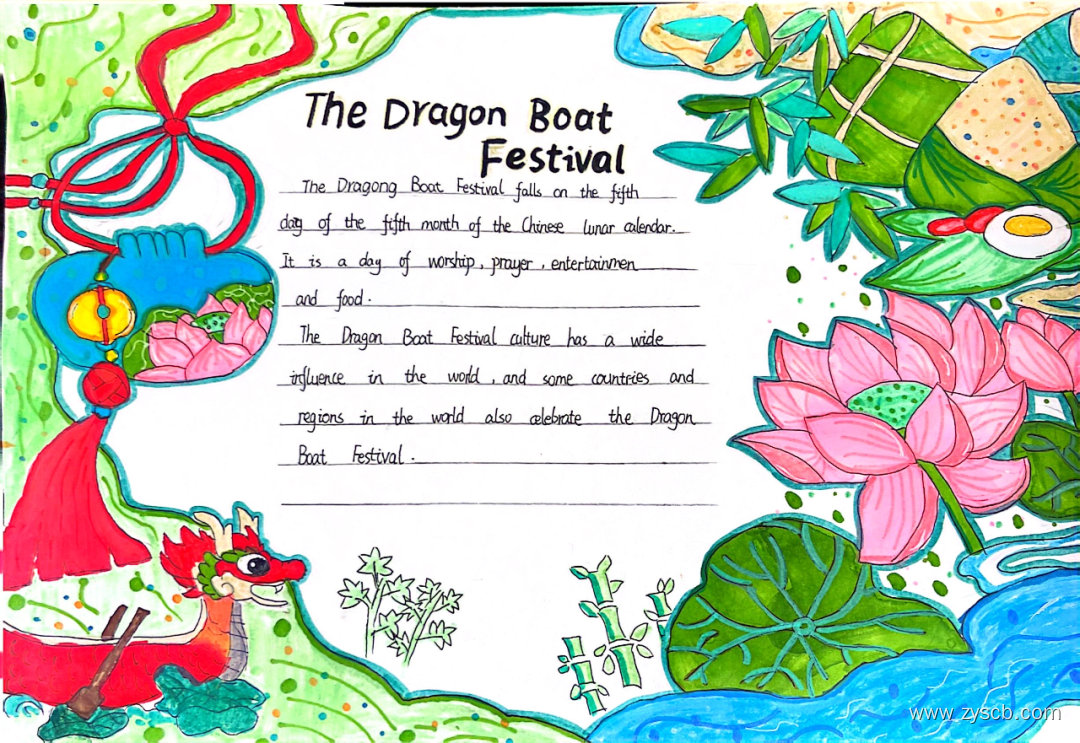 The Dragon Boat
Festival
The Dragong Boat Festival falls on the fifth
day of the fifth month of the Chinese lunar calendar.
It is a day of worship, prayer, entertainmen
and food.
The Dragon Boat Festival culture has a wide
influence in the world, and some countries and
regions in the world also celebrate the Dragon
Boat Festival.
www.zyscb.com